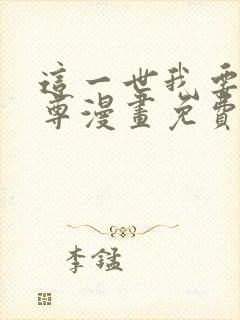 這一世我要
尊漫畫免費
李錳